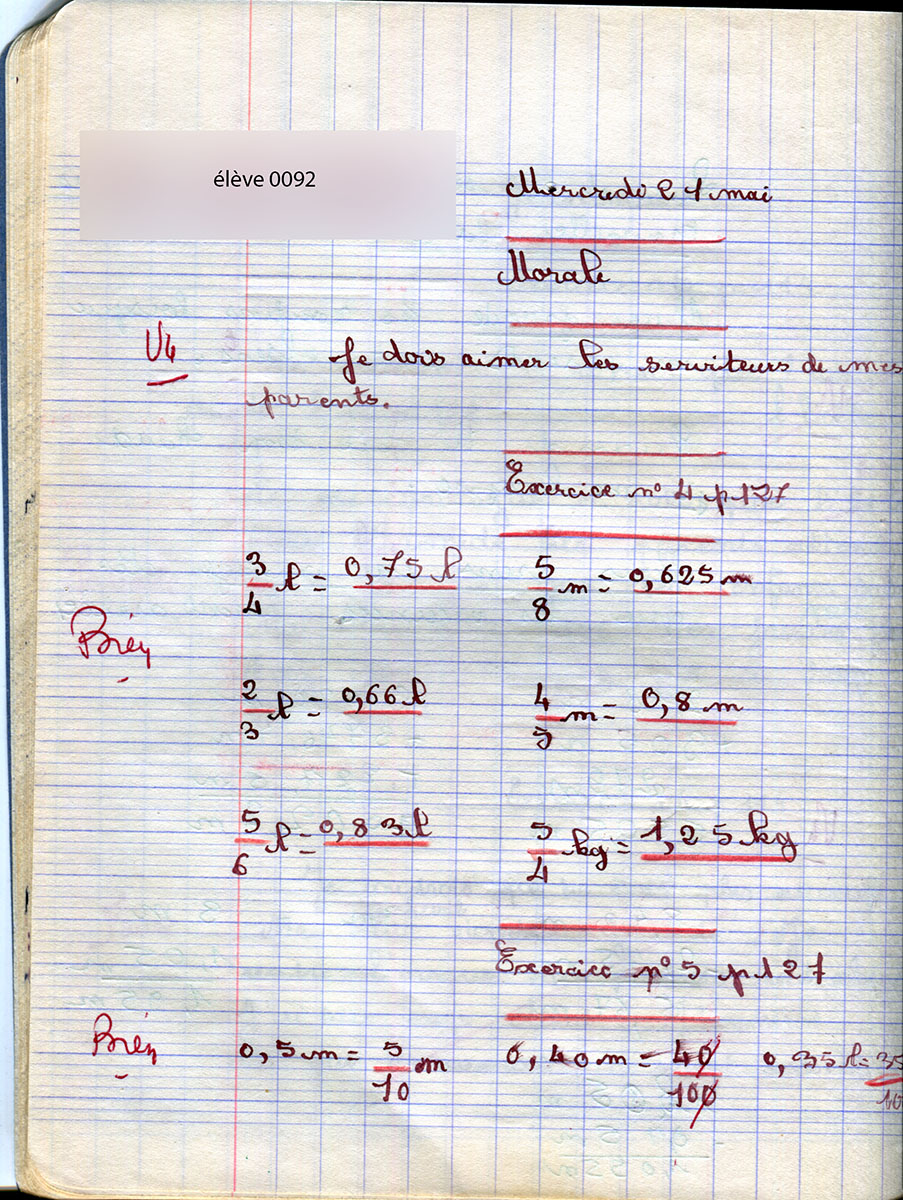 élève 0092
Mercredi 21 mai
Morale
Vu
Je dois aimer les serviteurs de mes
parents.
Exercice n° 4 p 127
3/4 l = 0,75 l 5/8 m = 0,625 m
Bien
2/3 l = 0,66 l 4/5 m = 0,8 m
5/6 l = 0,83 l 5/4 kg = 1,25 kg
Exercice n° 5 p 127
Bien 0,5 m = 5/10 m 0,40 m = 40/100 0,35 l = 35/10